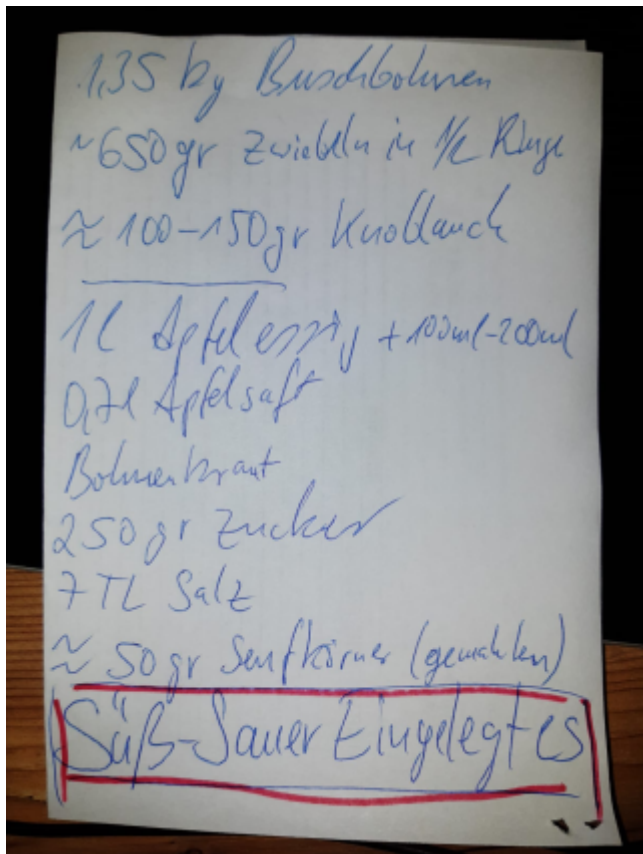 1,35 kg Buschbohnen
~650gr Zwiebeln in 1/2 Ringe
≈ 100-150gr Knoblauch
1l Apfelessig + 100ml-200ml
0,7l Apfelsaft
Bohnenkraut
250gr Zucker
7 TL Salz
≈ 50gr Senfkörner (gemahlen)
Süß-Sauer Eingelegtes